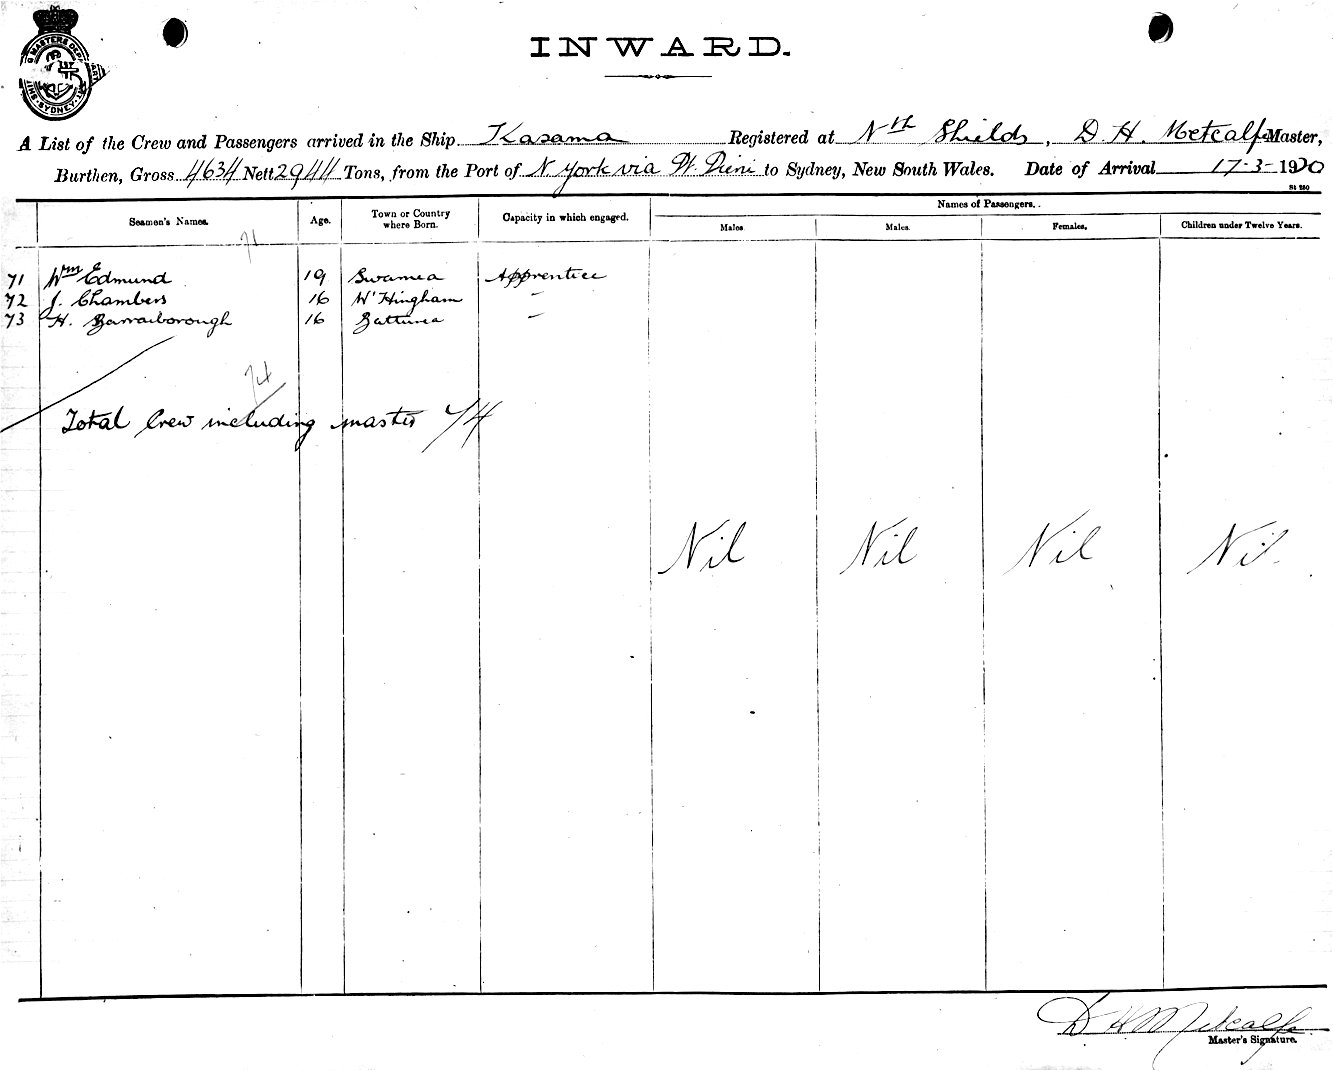 INWARD.
SHIPPING MASTERS DEPARTMENT SYDNEY
A List of the Crew and Passengers arrived in the Ship Kasama Registered at Nth Shields, D. H. Metcalfe Master,
Burthen, Gross 4634 Nett 2944 Tons, from the Port of N York via Pt. Pirie to Sydney, New South Wales. Date of Arrival 17-3-1920
St 250
Seamen's Names. Age. Town or Country where Born. Capacity in which engaged. Names of Passengers.
Males. Males. Females. Children under Twelve Years.
71
71 Wm Edmund 19 Swansea Apprentice
72 J. Chambers 16 W'Hingham "
73 H. 16 "
74
Total Crew including master 74
Nil Nil Nil Nil
D H Metcalfe
Master's Signature.